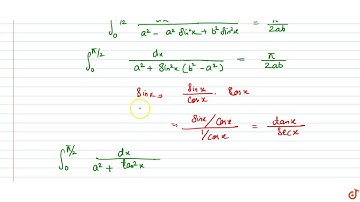 ∫₀^π/2 dx / (a² - a² sin²x + b² sin²x) = π / 2ab
∫₀^π/2 dx / (a² + sin²x (b² - a²)) = π / 2ab
sinx = sinx / cosx . cosx
= (sinx / cosx) / (1/cosx) = tanx / secx
∫₀^π/2 dx / (a² + tan²x